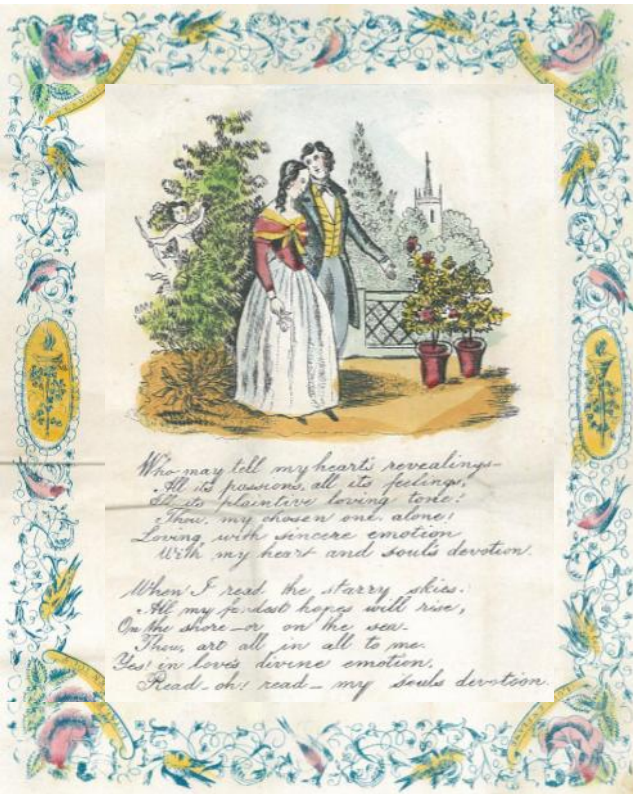 Who may tell my heart's revealings—
All its passions, all its feelings,
All its plaintive loving tone!
Thou, my chosen one, alone!
Loving with sincere emotion
With my heart and soul's devotion.
When I read the starry skies.
All my fondest hopes will rise,
On the shore—or on the sea—
Thou, art all in all to me.
Yes! in love's divine emotion,
Read—oh! read—my souls devotion.